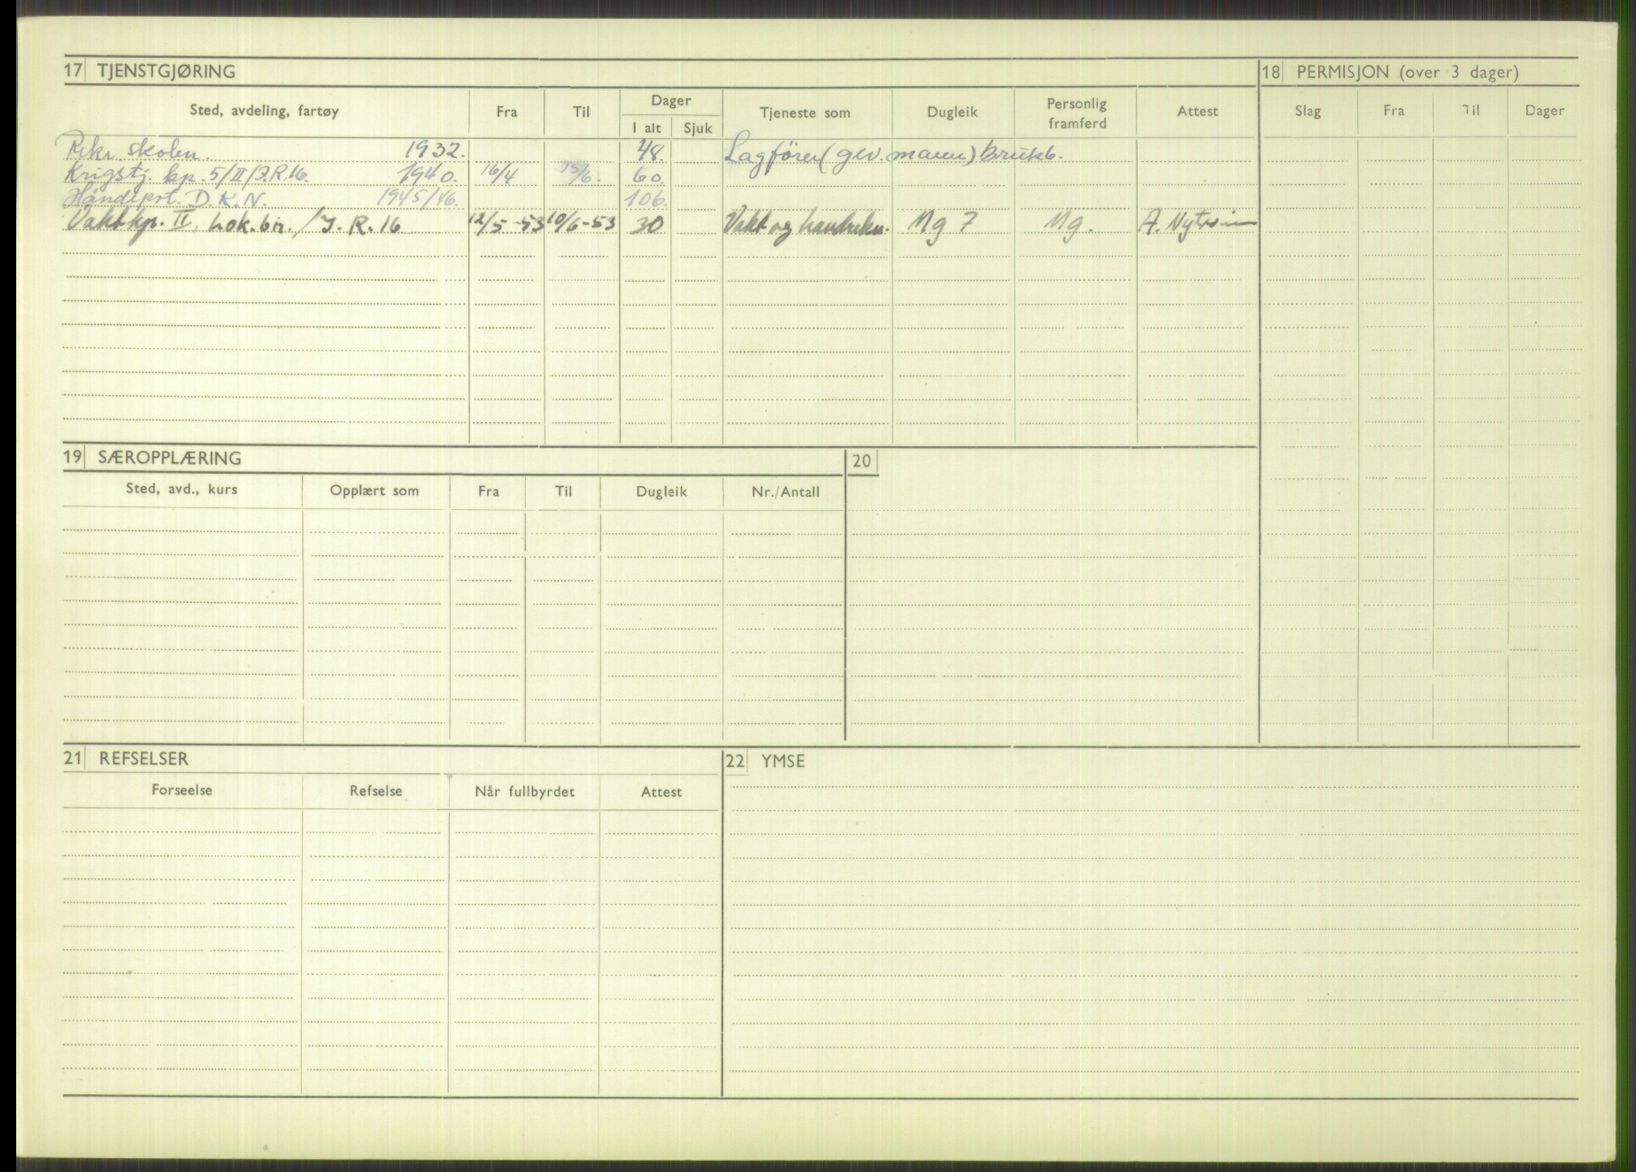 17 TJENSTGJØRING
18 PERMISJON (over 3 dager)
Sted, avdeling, fartøy Fra Til Dager Tjeneste som Dugleik Personlig framferd Attest
I alt Sjuk
Slag Fra Til Dager
Rekr. skolen. 1932. 48 Lagfører (gev. mann) Brukb.
Krigstj. kp. 5/II/I.R.16. 1940. 16/4 15/6. 60.
D.K.N. 1945/46. 106.
Vaktkp. II. Lok.bn. /I.R.16 12/5-53 10/6-53 30 Vakt og Mg 7 Mg. A.
19 SÆROPPLÆRING
20
Sted, avd., kurs Opplært som Fra Til Dugleik Nr./Antall
21 REFSELSER
22 YMSE
Forseelse Refselse Når fullbyrdet Attest